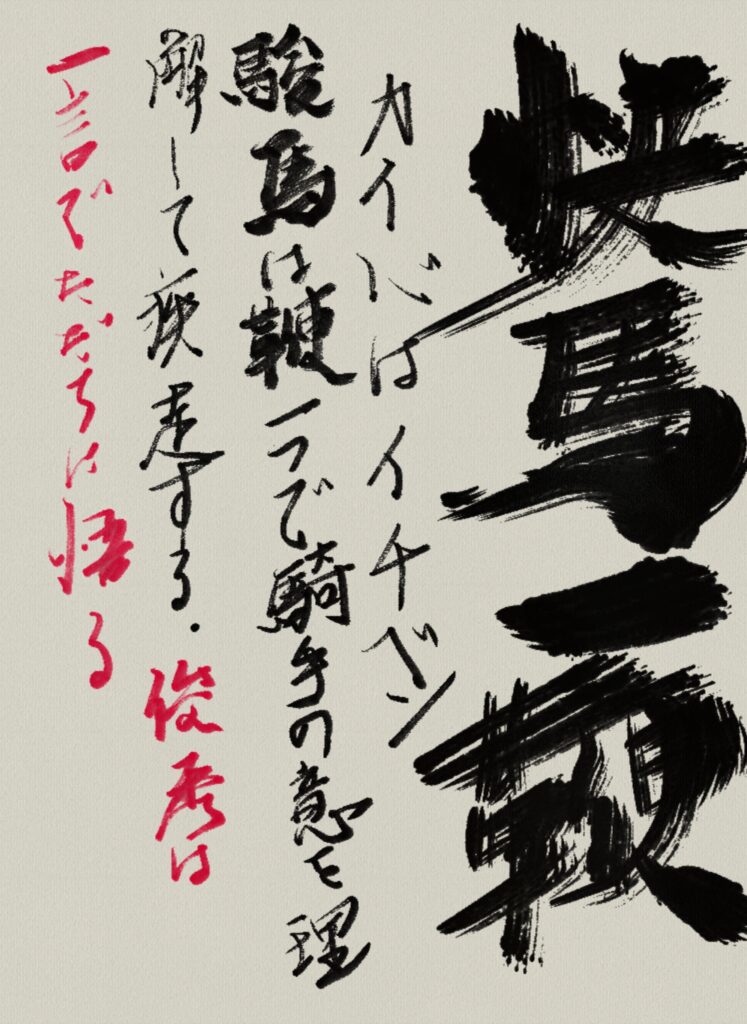 快馬一鞭
カイバはイチベン
駿馬は鞭一つで騎手の意を理
解して疾走する．俊秀は
一言でただちに悟る